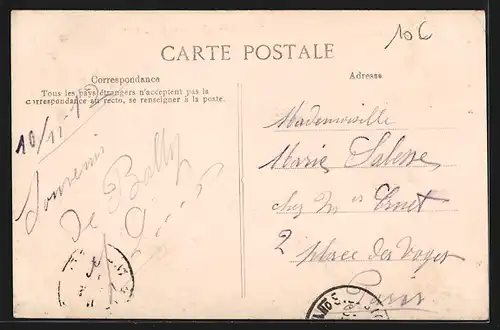 10 c
CARTE POSTALE
Correspondance
Tous les pays étrangers n'acceptent pas la
correspondance au recto, se renseigner à la poste.
Adresse
10/11-
Souvenir
de Bally
Mademoiselle
Marie
chez Mr
2 Place des Vosges
Paris